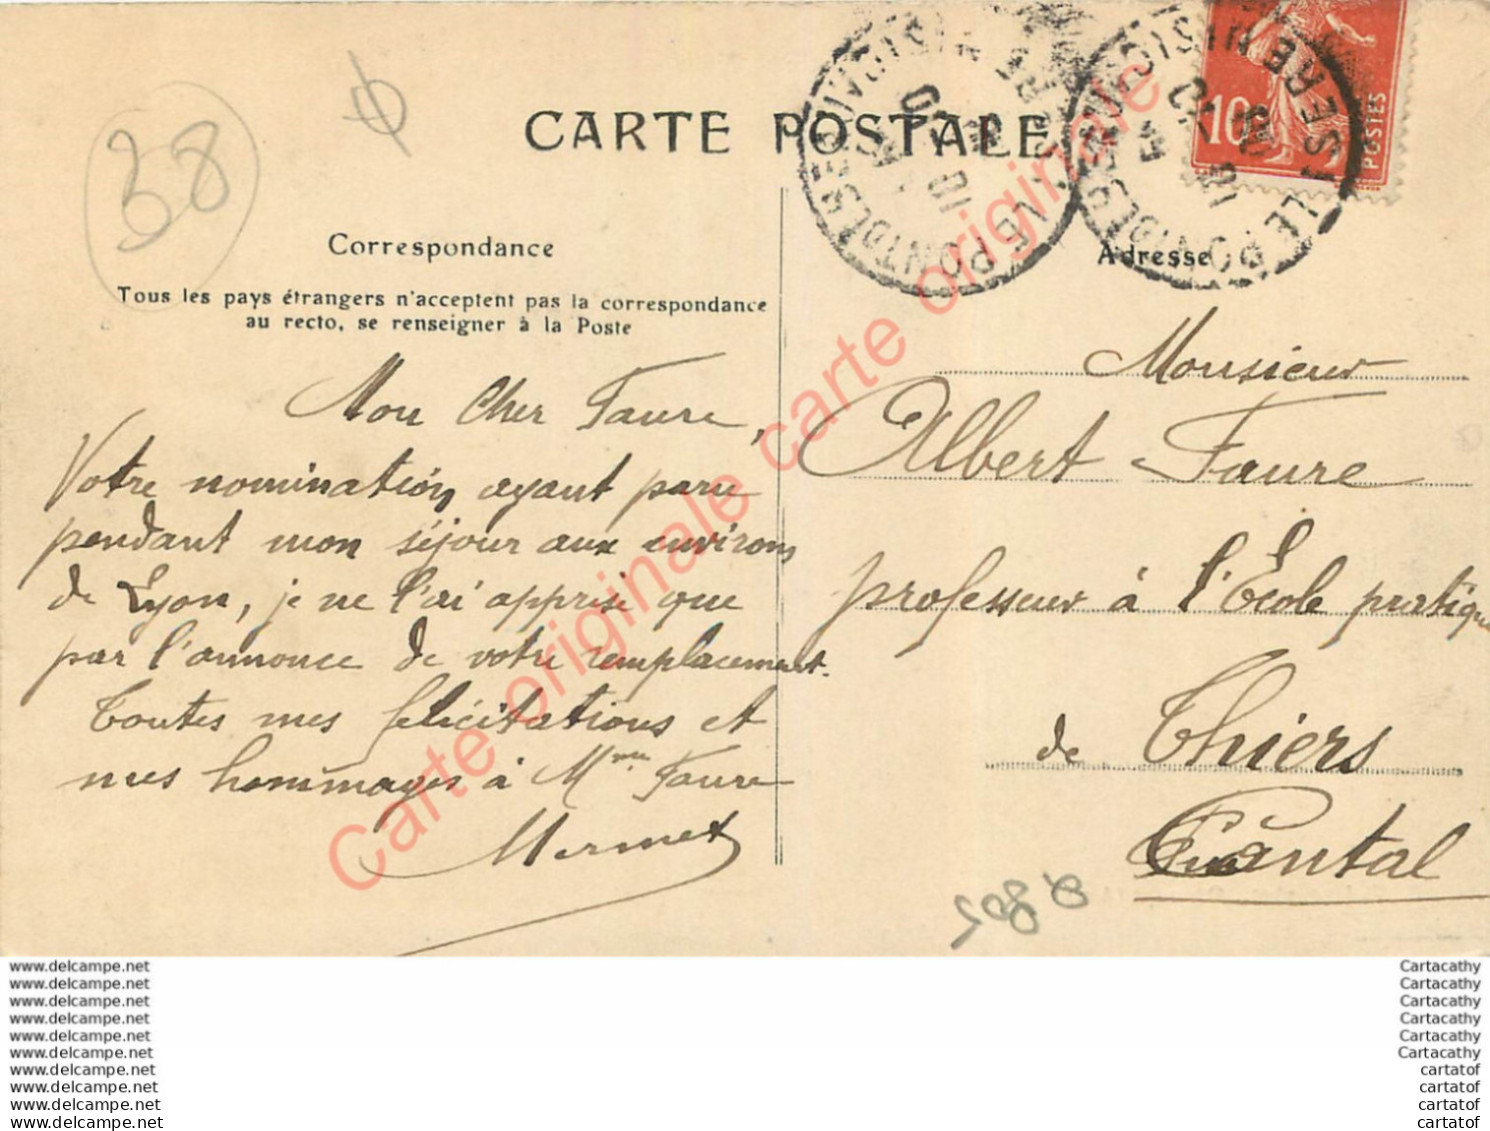 38
CARTE POSTALE
Correspondance
Tous les pays étrangers n'acceptent pas la correspondance
au recto, se renseigner à la Poste
Mon Cher Faure,
Votre nomination ayant paru
pendant mon séjour aux environs
de Lyon, je ne l'ai apprise que
par l'annonce de votre remplacement.
Toutes mes félicitations et
mes hommages à Mme Faure
Mermet
LE PONT DE BEAUVOISIN
ISERE
10
POSTES
Adresse
Monsieur
Albert Faure
professeur à l'École pratique
de Thiers
Cantal
Carte originale carte originale
www.delcampe.net
www.delcampe.net
www.delcampe.net
www.delcampe.net
www.delcampe.net
www.delcampe.net
www.delcampe.net
www.delcampe.net
www.delcampe.net
www.delcampe.net
Cartacathy
Cartacathy
Cartacathy
Cartacathy
Cartacathy
Cartacathy
cartatof
cartatof
cartatof
cartatof